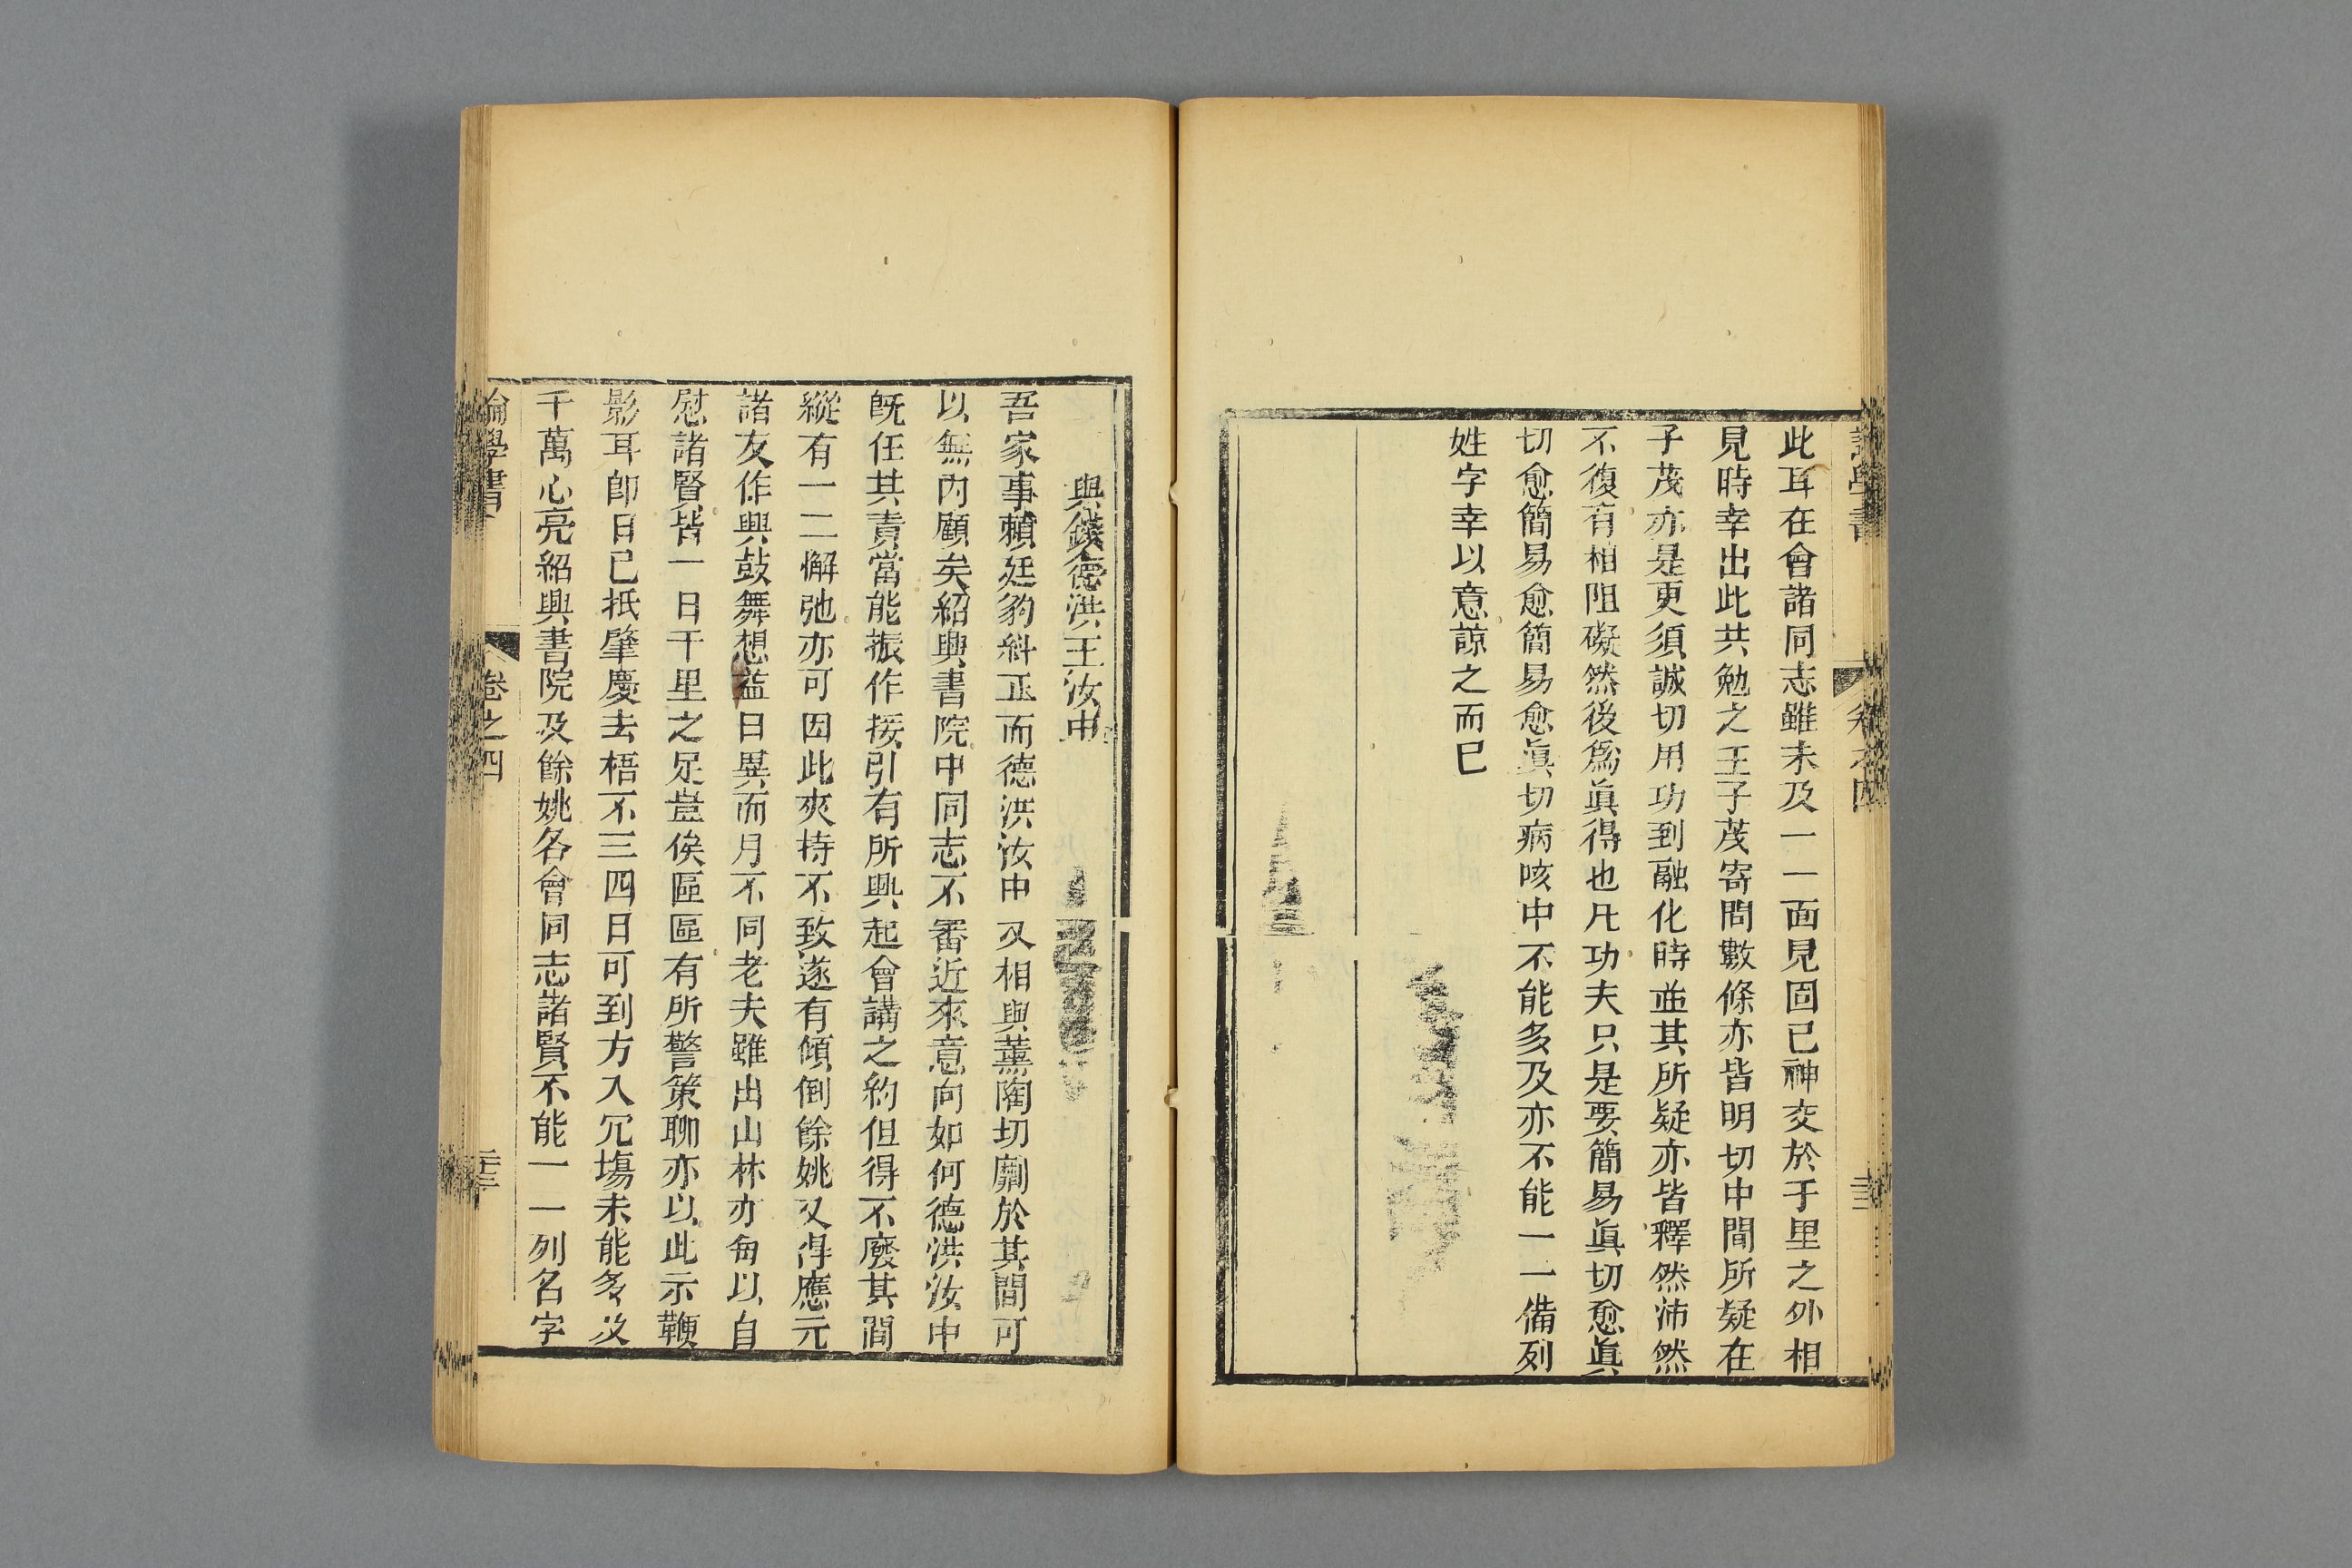 此耳在會諸同志雖未及一一面見固已神交於千里之外相
見時幸出此共勉之王子茂寄問數條亦皆明切中間所疑在
子茂亦是更須誠切用功到融化時並其所疑亦皆釋然沛然
不復有相阻礙然後爲眞得也凡功夫只是要簡易眞切愈眞
切愈簡易愈簡易愈眞切病咳中不能多及亦不能一一備列
姓字幸以意諒之而已
與錢德洪王汝中
吾家事賴廷豹糾正而德洪汝中又相與薰陶切劘於其間可
以無內顧矣紹興書院中同志不審近來意向如何德洪汝中
旣任其責當能振作接引有所興起會講之約但得不廢其間
縱有一二懈弛亦可因此夾持不致遂有傾倒餘姚又得應元
諸友作興鼓舞想益日異而月不同老夫雖出山林亦每以自
慰諸賢皆一日千里之足豈俟區區有所警策聊亦以此示鞭
影耳卽日已抵肇慶去梧不三四日可到方入冗塲未能多及
千萬心亮紹興書院及餘姚各會同志諸賢不能一一列名字
論學書
卷之四